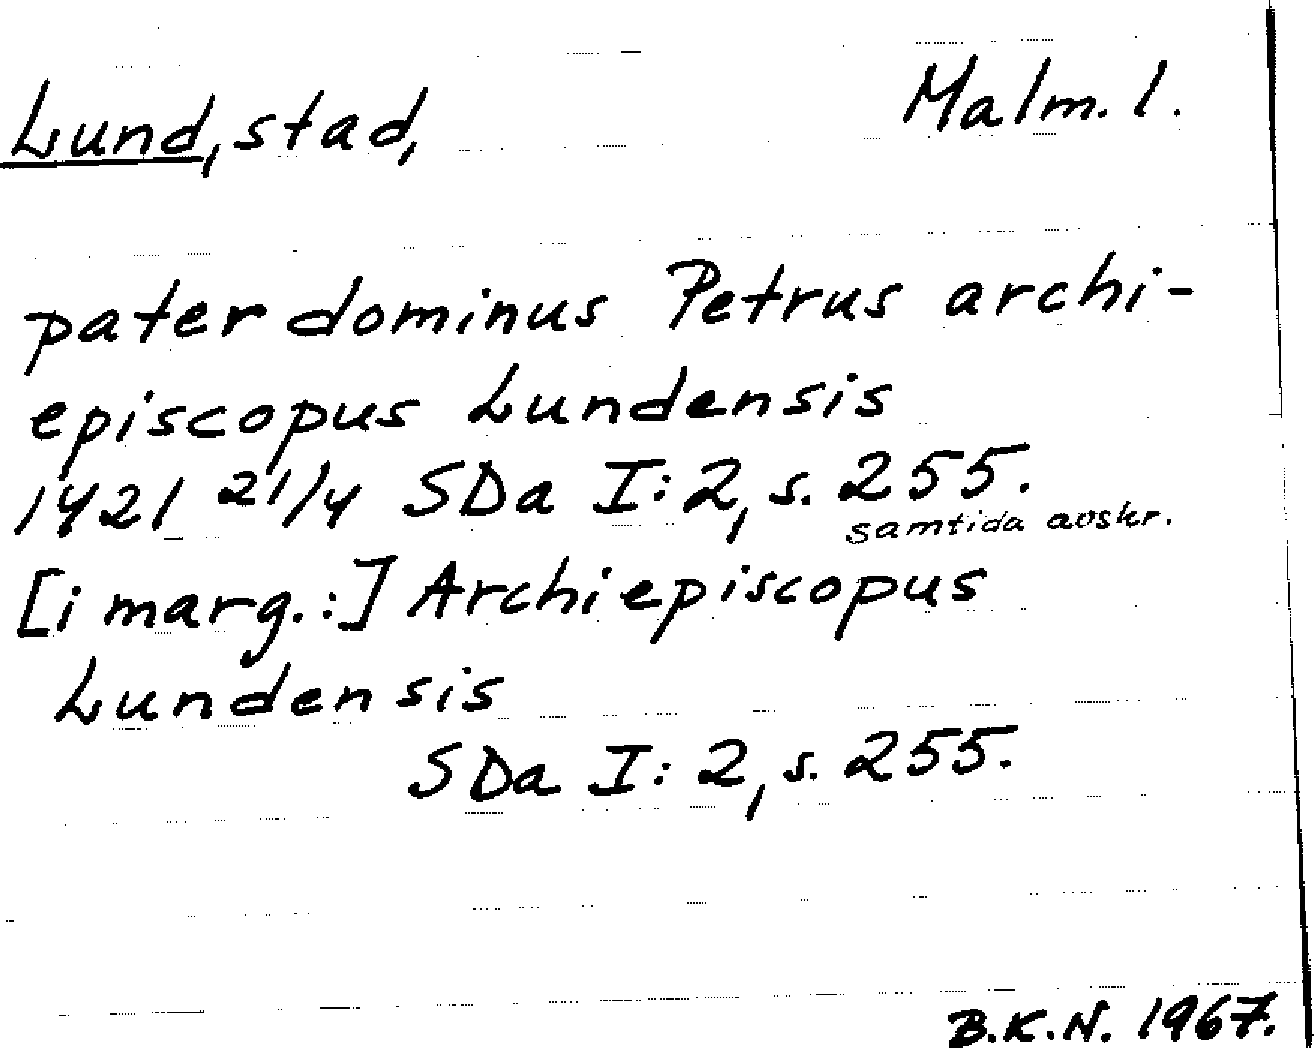 Lund, stad, Malm. l.
pater dominus Petrus archi-
episcopus Lundensis
1421 21/4 SDa I:2, s. 255.
samtida avskr.
[i marg.:] Archiepiscopus
Lundensis
SDa I:2, s. 255.
B.K.N. 1967.